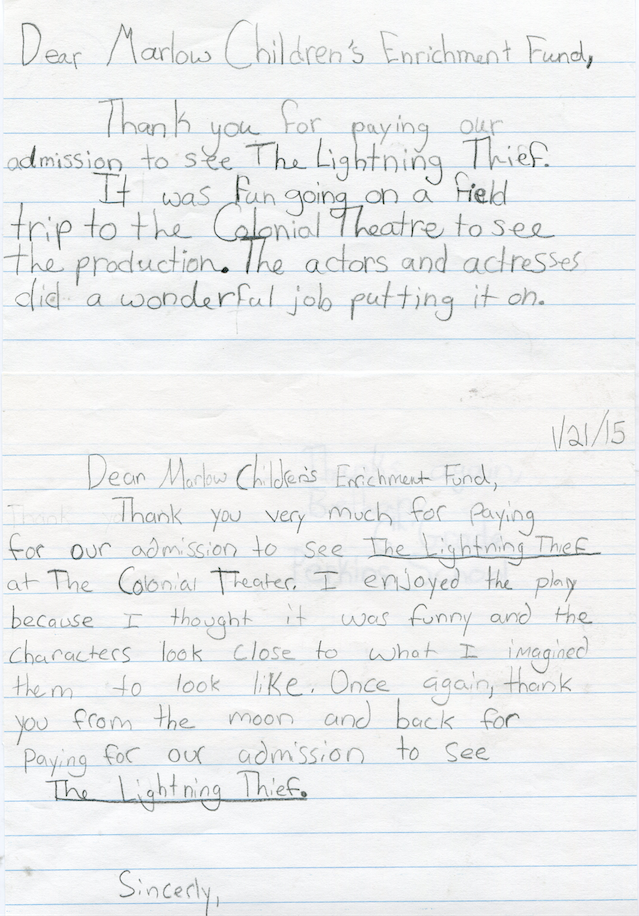 Dear Marlow Children's Enrichment Fund,
Thank you for paying our
admission to see The Lightning Thief.
It was fun going on a field
trip to the Colonial Theatre to see
the production. The actors and actresses
did a wonderful job putting it on.
1/21/15
Dear Marlow Children's Enrichment Fund,
Thank you very much for paying
for our admission to see The Lightning Thief
at The Colonial Theater. I enjoyed the play
because I thought it was funny and the
characters look close to what I imagined
them to look like. Once again, thank
you from the moon and back for
paying for our admission to see
The Lightning Thief.
Sincerly,